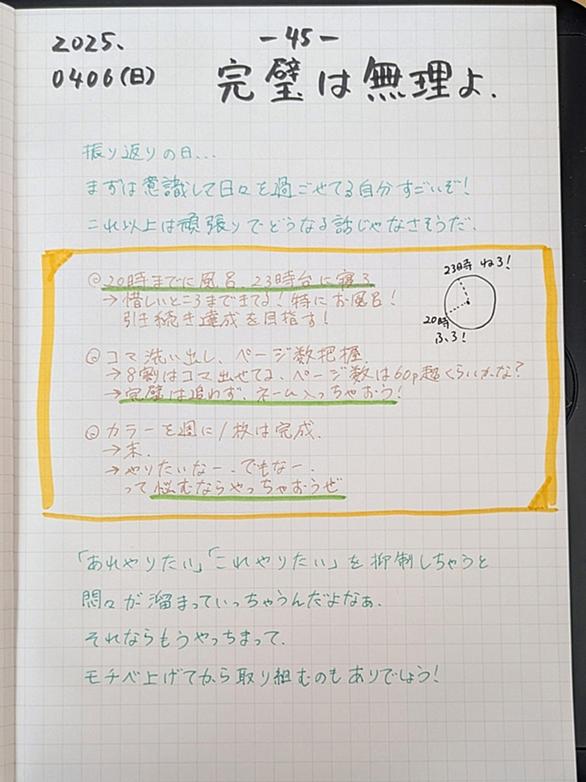 2025.
0406(日)
-45-
完璧は無理よ.
振り返りの日...
まずは意識して日々を過ごせてる自分すごいぞ!
これ以上は頑張りでどうなる話じゃなさそうだ.
◎20時までに風呂 23時台に寝る
→惜しいところまできてる!特にお風呂!
引き続き達成を目指す!
23時 ねろ!
20時
ふろ!
◎コマ洗い出し、ページ数把握.
→8割はコマ出せてる、ページ数は60p超くらいかな?
→完璧は追わず、ネーム入っちゃおう!
◎カラーを週に1枚は完成.
→未.
→やりたいなー.でもなー.
って悩むならやっちゃおうぜ
「あれやりたい」「これやりたい」を抑制しちゃうと
悶々が溜まっていっちゃうんだよなぁ.
それならもうやっちまって.
モチベ上げてから取り組むのもありでしょう!